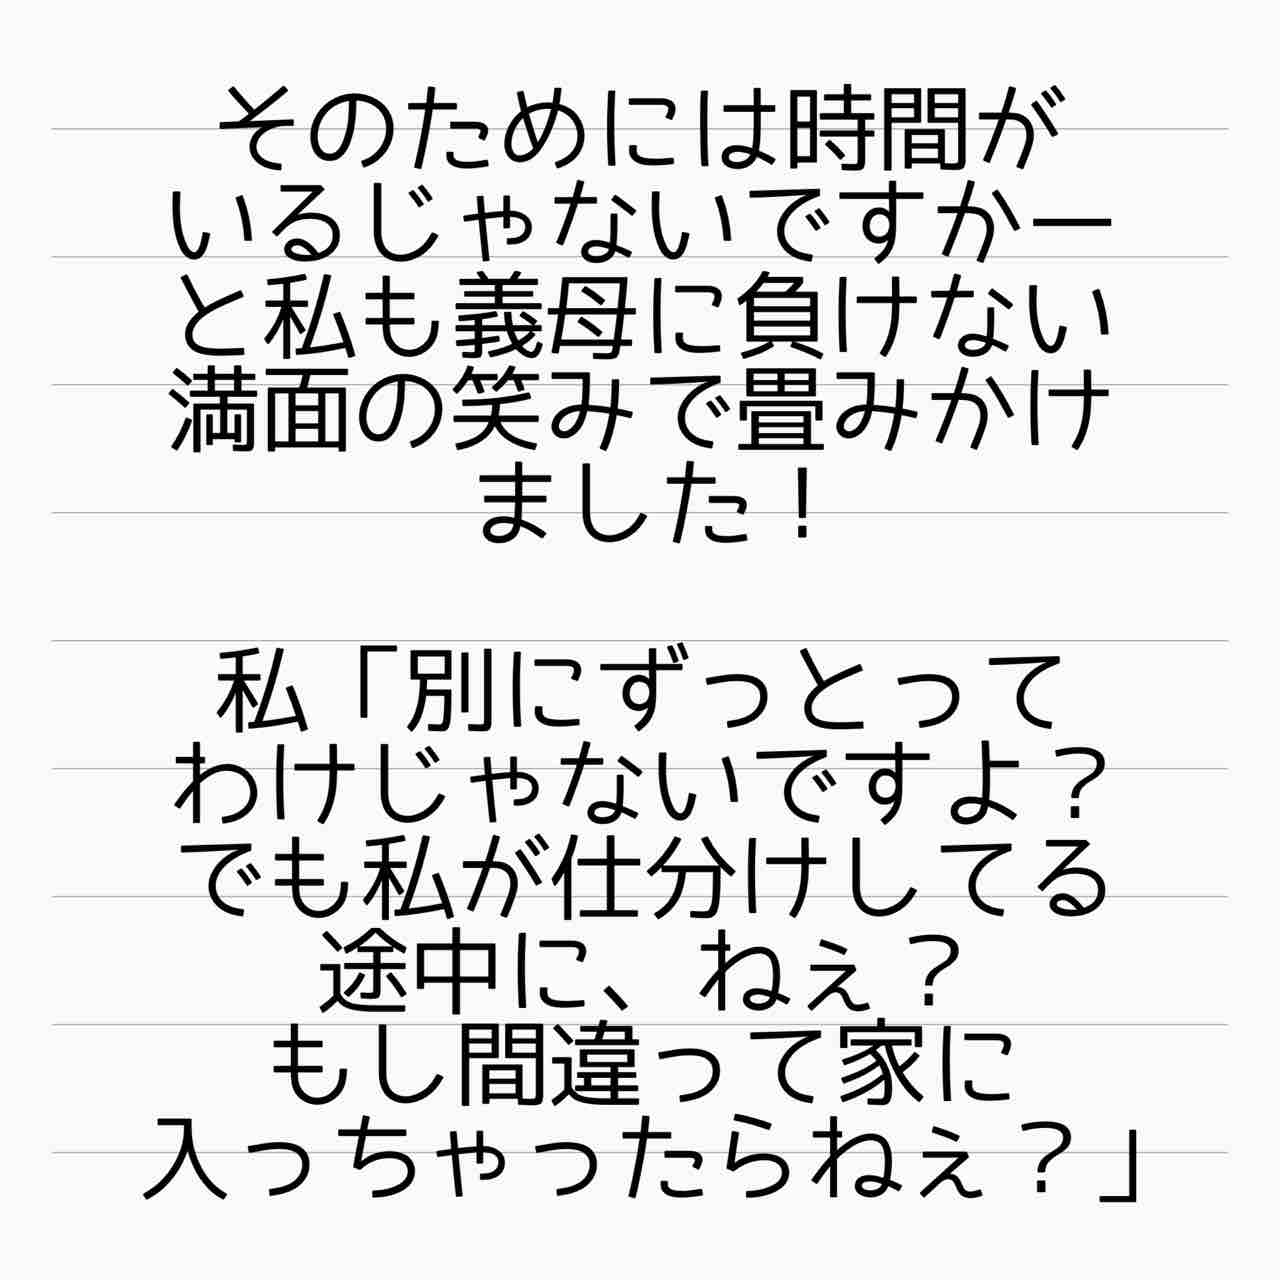 そのためには時間が
いるじゃないですかー
と私も義母に負けない
満面の笑みで畳みかけ
ました！
私「別にずっとって
わけじゃないですよ？
でも私が仕分けしてる
途中に、ねぇ？
もし間違って家に
入っちゃったらねぇ？」